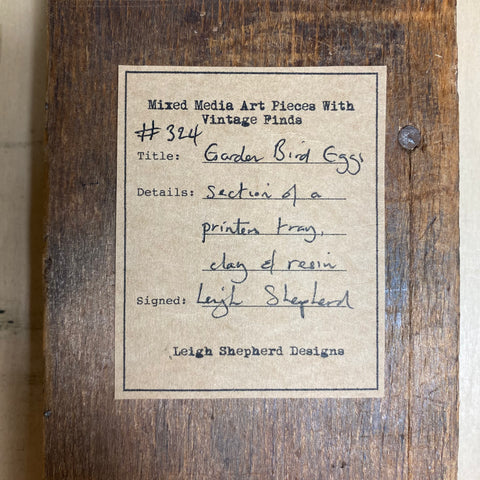 Mixed Media Art Pieces With
Vintage Finds
#324
Title: Garden Bird Eggs
Details: Section of a
printers tray,
clay & resin
Signed: Leigh Shepherd
Leigh Shepherd Designs